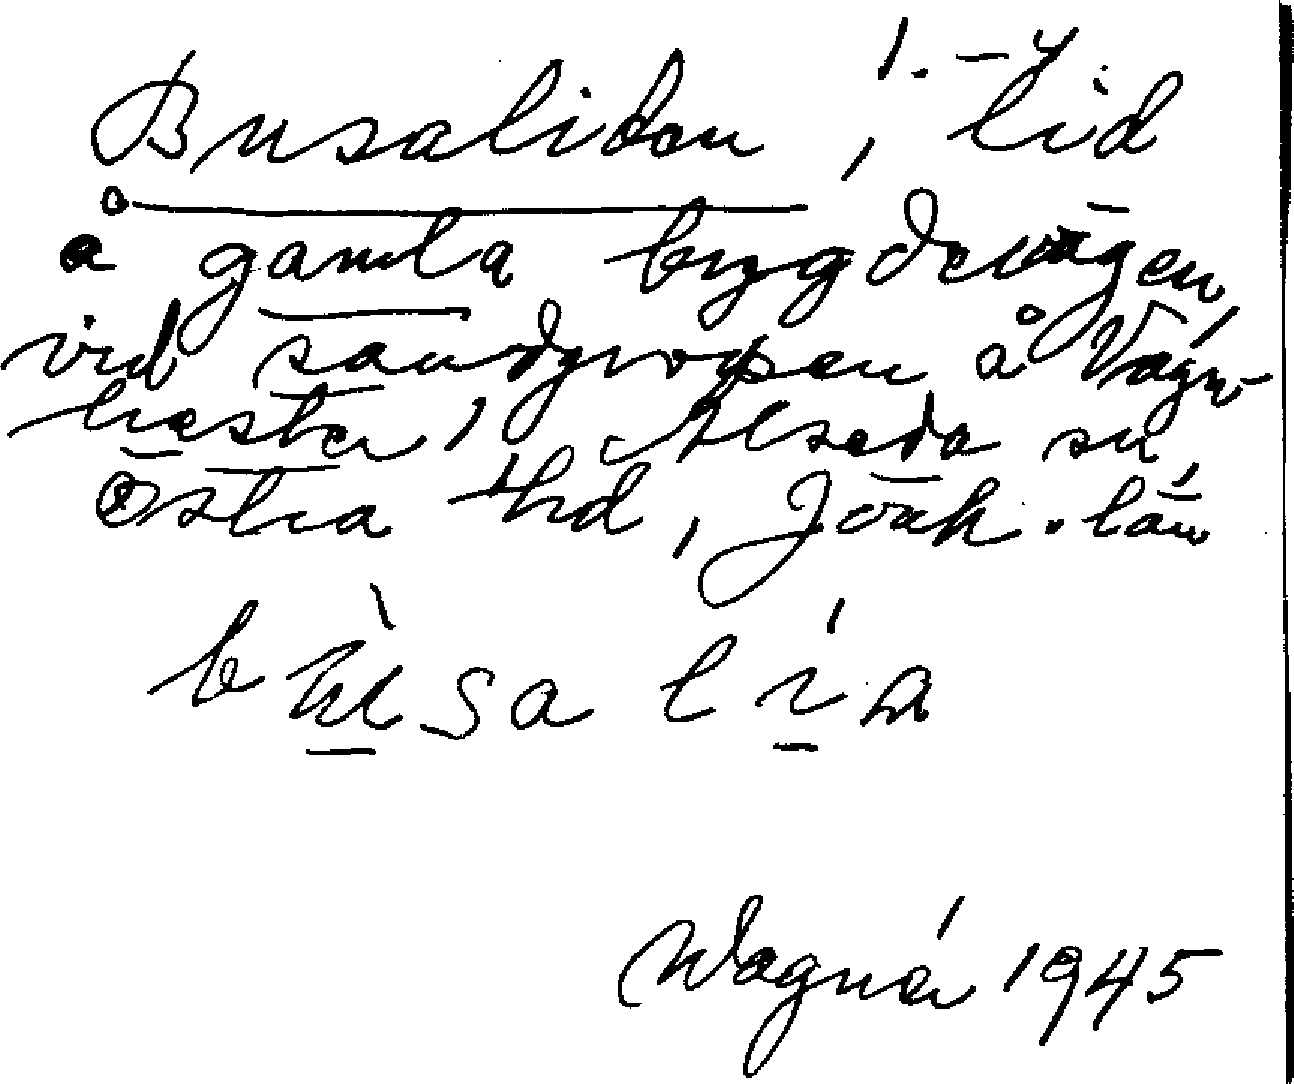 1.-4.
Busaliden, lid
å gamla bygdevägen,
vid sandgropen å Vagn-
hester, Alseda sn,
Östra hd, Jönk. län
bùsalía
Wagnér 1945